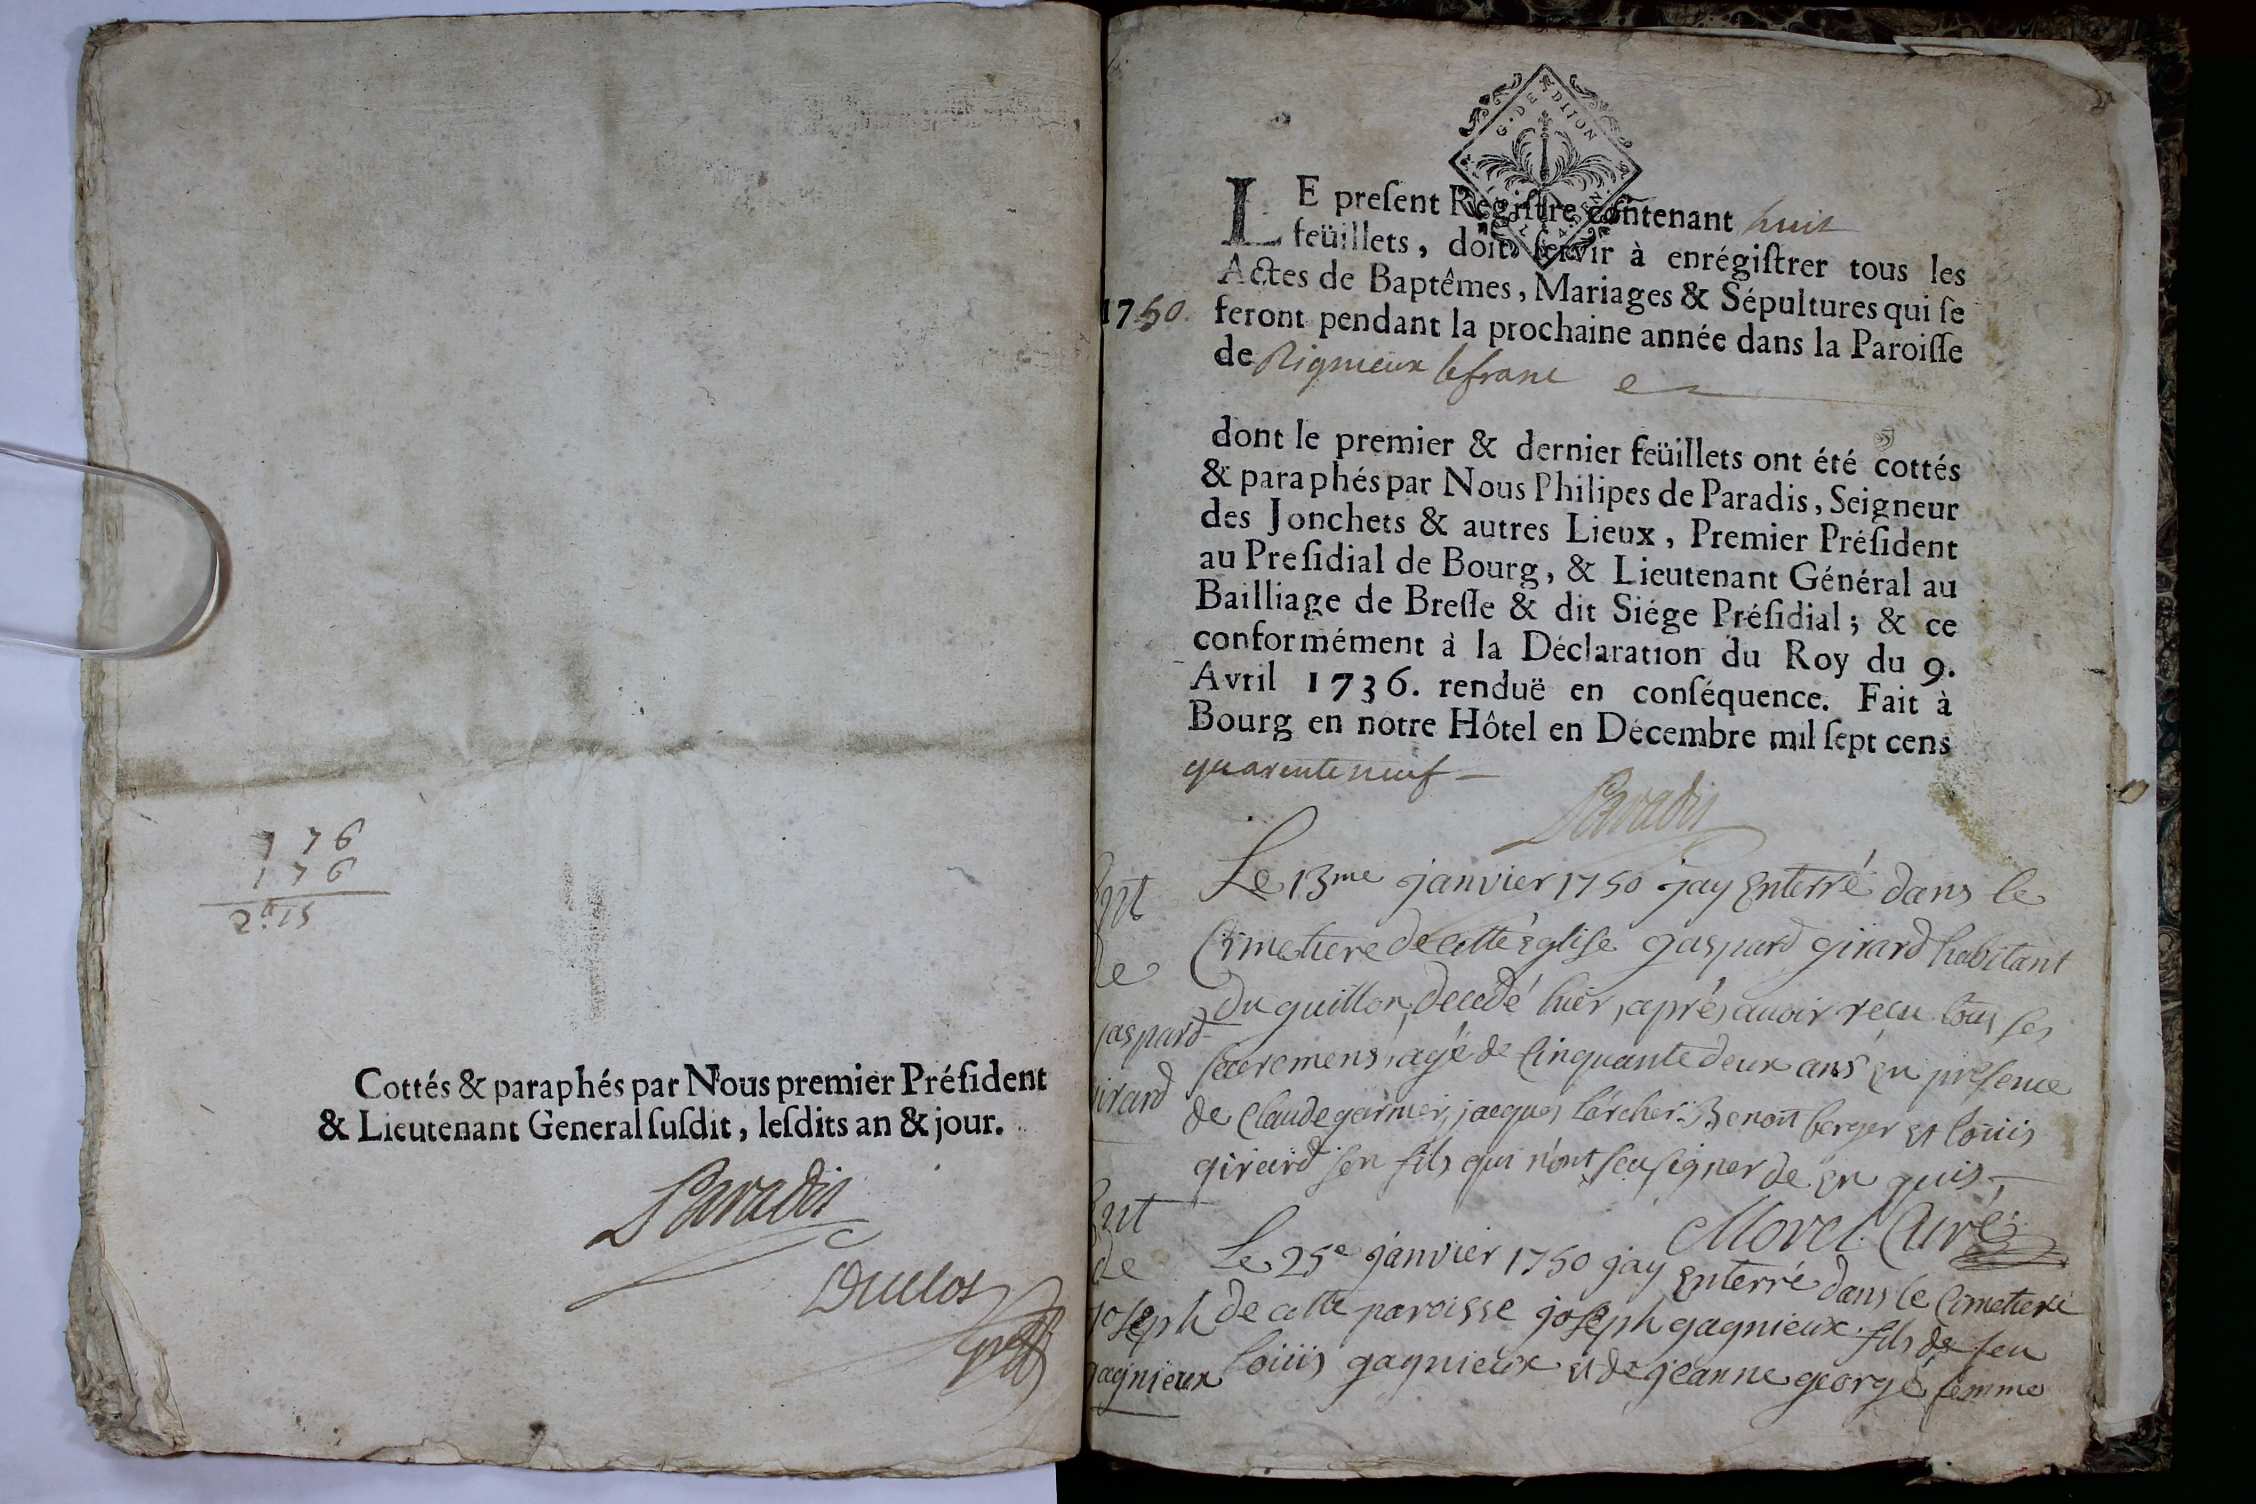 Cottés & paraphés par Nous premier Préſident
& Lieutenant General ſuſdit, leſdits an & jour.
Paradis
Duclos
G. DE DIJON
LE preſent Regiſtre contenant huit
feüillets, doit ſervir à enrégiſtrer tous les
Actes de Baptêmes, Mariages & Sépultures qui ſe
1750. feront pendant la prochaine année dans la Paroiſſe
de Rignieux lefranc
dont le premier & dernier feüillets ont été cottés
& paraphés par Nous Philipes de Paradis, Seigneur
des Jonchets & autres Lieux, Premier Préſident
au Preſidial de Bourg, & Lieutenant Général au
Bailliage de Breſſe & dit Siége Préſidial; & ce
conformément à la Déclaration du Roy du 9.
Avril 1736. renduë en conſéquence. Fait à
Bourg en notre Hôtel en Décembre mil ſept cens
quarente neuf
Paradis
Ent
de
gaspard
girard
Le 13me janvier 1750 jay Enterré dans le
Cimetiere de cette église gaspard girard habitant
du guillon, decedé hier, aprés avoir reçu tous ses
sacremens, agé de Cinquante deux ans en presence
de Claude garnier, jacques larcher, Benoit berger et loüis
girard son fils qui n'ont sçu signer de En quis
Morel Curé
Ent
de
joseph
gagnieux
Le 25e janvier 1750 jay Enterré dans le Cimetiere
de cette paroisse joseph gagnieux fils de feu
loüis gagnieux et de jeanne george, femme